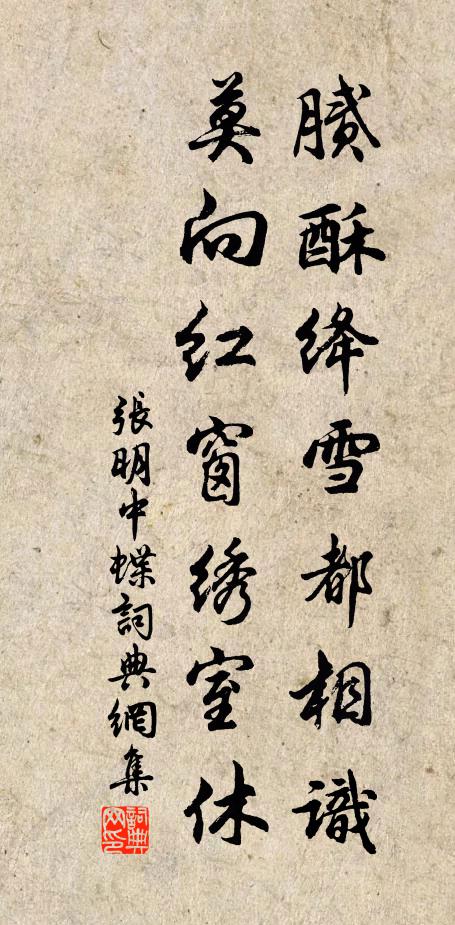 膩酥絳雪都相識
莫向紅窗綉室休
張明中蝶詞典網集
詞典
网印